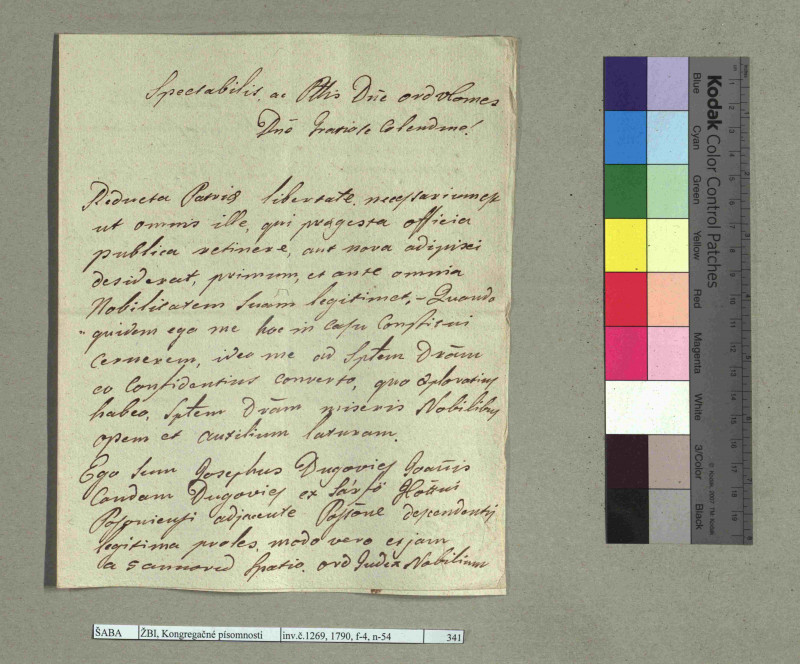 Spectabilis, ac Pttis Dne ord vIcomes
Dne Gratiose Colendme!
Reducta Patriæ libertate, necessarium est
ut omnis ille, qui prægesta officia
publica retinere, aut nova adipisci
desiderat, primum, et ante omnia
Nobilitatem Suam legitimet, - Quando
quidem ego me hoc in Casu Constitui
cernerem, ideo me ad Spttem Dnãm
eo Confidentius converto, quo exploratius
habeo, Spttem Dnãm miseris Nobilibus
opem et auxilium laturam.
Ego Sum Josephus Dugovics Joannis
Condam Dugovics ex Sárfő
Posoniensi adjacente dependentis
legitima proles, modo vero etjam
a 5 annorum Spatio, ord Judex Nobilium
Kodak Color Control Patches
Blue
Cyan
Green
Yellow
Red
Magenta
White
3/Color
Black
ŠABA ŽBI, Kongregačné písomnosti inv.č.1269, 1790, f-4, n-54 341